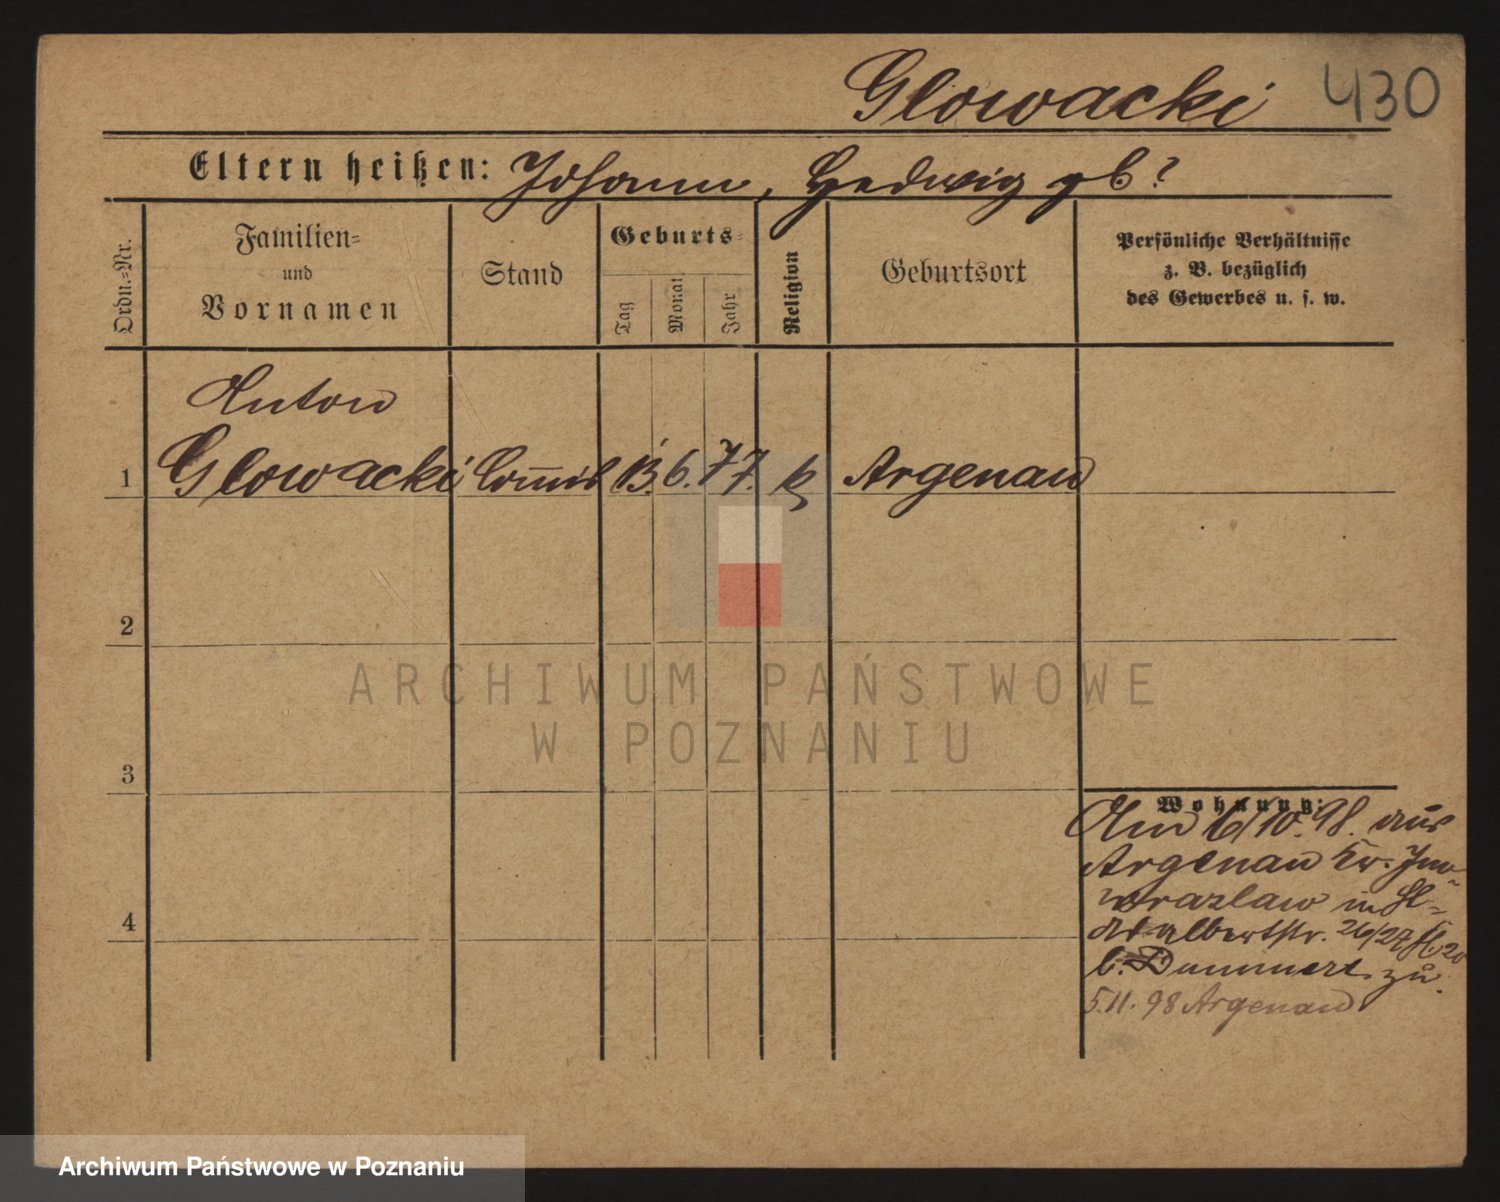 Glowacki 430
Eltern heißen: Johann, Hedwig gb?
Ordn.=Nr.
Familien=
und
Vornamen
Stand
Geburts=
Tag
Monat
Jahr
Religion
Geburtsort
Persönliche Verhältnisse
z. B. bezüglich
des Gewerbes u. s. w.
Anton
1 Glowacki Com̅is 13. 6. 77. k Argenau
2
ARCHIWUM PAŃSTWOWE
W POZNANIU
3
Wohnung:
Am 6/10. 98. aus
Argenau Kr. Ino
wrazlaw in St=
Adalbertstr. 26/27
b. Dammert zu.
5.11.98 Argenau
4
Archiwum Państwowe w Poznaniu